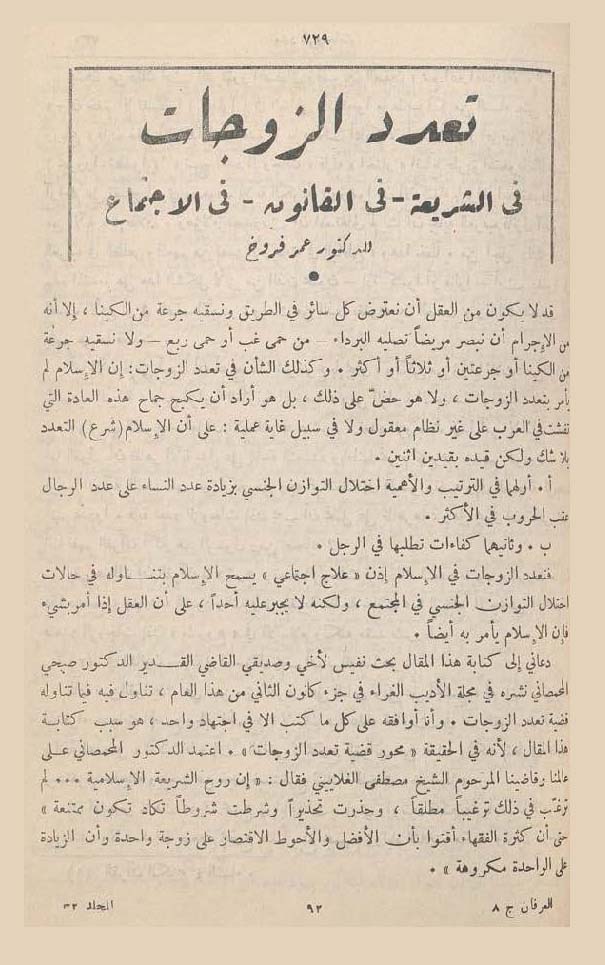 ٧٢٩
تعدد الزوجات
في الشريعة - في القانون - في الاجتماع
للدكتور عمر فروخ
قد لا يكون من العقل أن نعترض كل سائر في الطريق ونسقيه جرعة من الكينا ، إلا أنه
من الإجرام أن نبصر مريضاً تصليه البرداء — من حمى غب أو حمى ربع — ولا نسقيه جرعة
من الكينا أو جرعتين أو ثلاثاً أو أكثر . وكذلك الشأن في تعدد الزوجات : إن الإسلام لم
يأمر بتعدد الزوجات ، ولا هو حضّ على ذلك ، بل هو أراد أن يكبح جماح هذه العادة التي
تفشت في العرب على غير نظام معقول ولا في سبيل غاية عملية : على أن الإسلام (شرع) التعدد
بلا شك ولكن قيده بقيدين اثنين .
أ . أولهما في الترتيب والأهمية اختلال التوازن الجنسي بزيادة عدد النساء على عدد الرجال
عقب الحروب في الأكثر .
ب . وثانيهما كفاءات تطلبها في الرجل .
فتعدد الزوجات في الإسلام إذن « علاج اجتماعي » يسمح الإسلام بتناوله في حالات
اختلال التوازن الجنسي في المجتمع ، ولكنه لا يجبر عليه أحداً ، على أن العقل إذا أمر بشيء
فإن الإسلام يأمر به أيضاً .
دعاني إلى كتابة هذا المقال بحث نفيس لأخي وصديقي القاضي القدير الدكتور صبحي
المحمصاني نشره في مجلة الأديب الغراء في جزء كانون الثاني من هذا العام ، تناول فيه فيما تناوله
قضية تعدد الزوجات . وأنا أوافقه على كل ما كتب الا في اجتهاد واحد ، هو سبب كتابة
هذا المقال ، لأنه في الحقيقة « محور قضية تعدد الزوجات » . اعتمد الدكتور المحمصاني على
عالمنا وقاضينا المرحوم الشيخ مصطفى الغلاييني فقال : « إن روح الشريعة الإسلامية ... لم
ترغّب في ذلك ترغيباً مطلقاً ، وحذرت تحذيراً وشرطت شروطاً تكاد تكون ممتنعة »
حتى أن كثرة الفقهاء أفتوا بأن الأفضل والأحوط الاقتصار على زوجة واحدة وأن الزيادة
على الواحدة مكروهة » .
العرفان ج ٨
٩٢
المجلد ٣٢